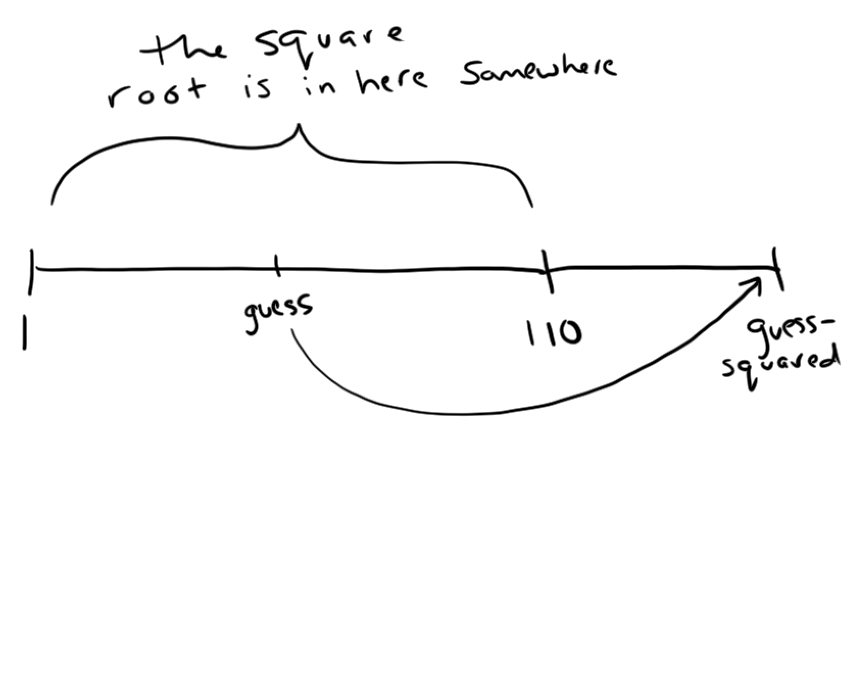 the square
root is in here somewhere
1
guess
110
guess-
squared